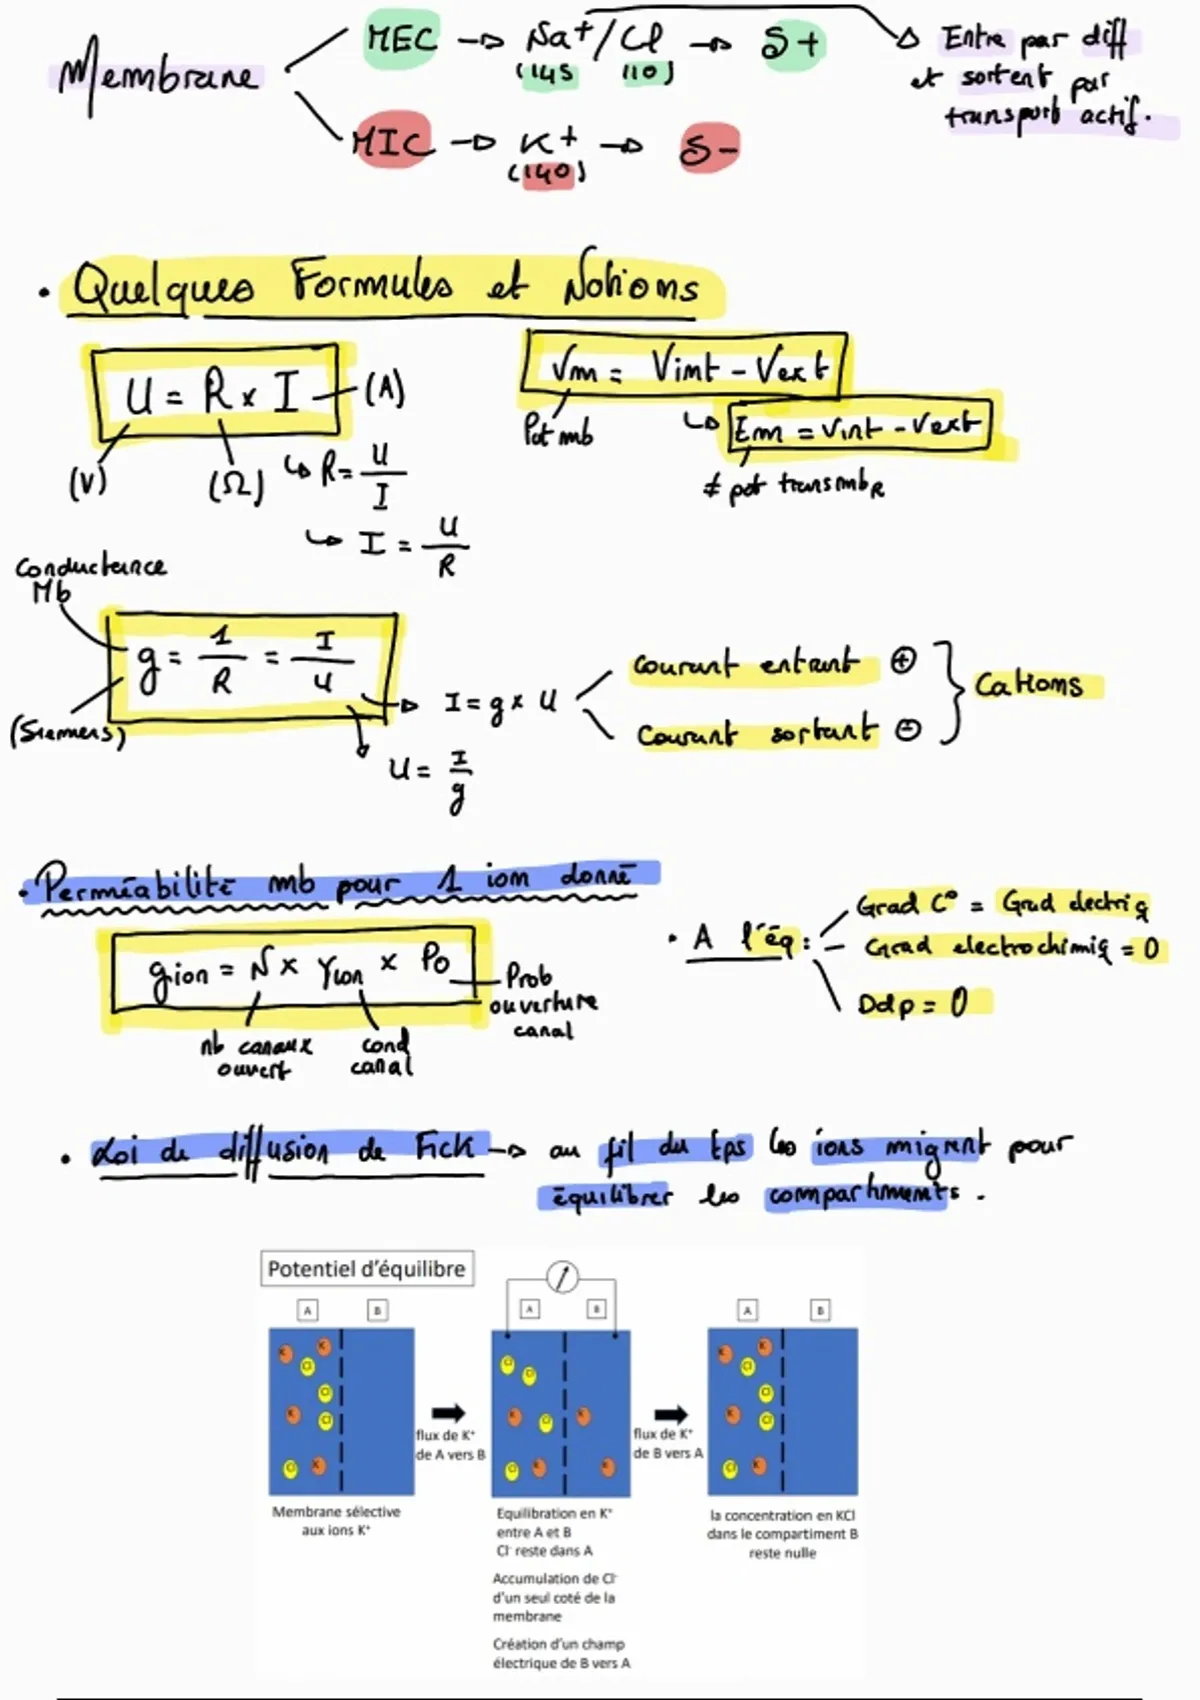 Membrane
MEC → Na+/Cl → δ+
(145 110)
Entre par diff
et sortent par
transport actif.
MIC → K+ → δ-
(140)
• Quelques Formules et Notions
U = R x I (A)
(V) (Ω)
↳ R = U/I
↳ I = U/R
Vm = Vint - Vext
Pot mb
↳ Em = Vint - Vext
≠ pot transmbR
Conductance
Mb
g = 1/R = I/U
(Siemens)
I = g x U
U = I/g
Courant entrant ⊕
Courant sortant ⊖
Cations
• Perméabilité mb pour 1 ion donné
gion = N x γion x Po
nb canaux
ouvert
cond
canal
Prob
ouverture
canal
• A l'éq :
Grad C° = Grad electriq
Grad electrochimiq = 0
Ddp = 0
• Loi de diffusion de Fick → au fil du tps les ions migrent pour
équilibrer les compartiments.
Potentiel d'équilibre
A B
A B
A B
K K Cl Cl K Cl Cl K
Cl Cl K Cl K Cl K K
K K Cl Cl K Cl Cl K
flux de K+
de A vers B
flux de K+
de B vers A
Membrane sélective
aux ions K+
Equilibration en K+
entre A et B
Cl- reste dans A
Accumulation de Cl-
d'un seul coté de la
membrane
Création d'un champ
électrique de B vers A
la concentration en KCl
dans le compartiment B
reste nulle